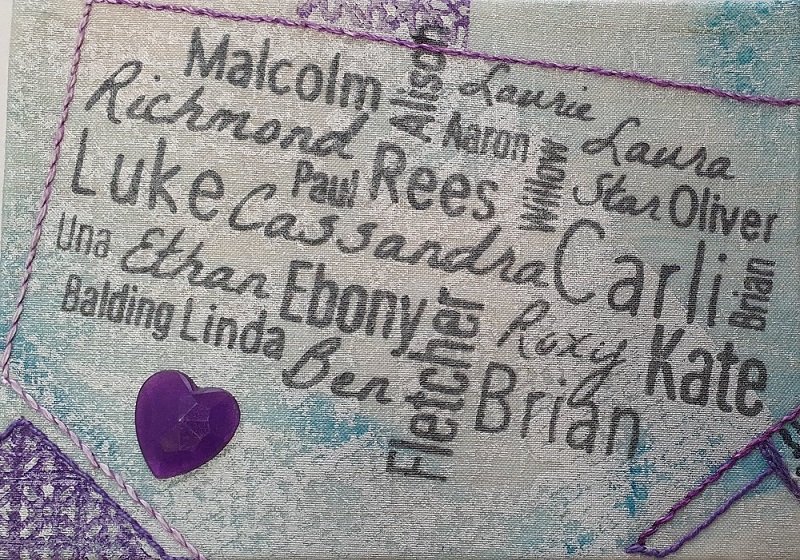 Malcolm
Alison
Laurie
Richmond
Aaron
Laura
Luke
Paul
Rees
Willow
Star
Oliver
Cassandra
Carli
Brian
Una
Ethan
Ebony
Fletcher
Roxy
Kate
Balding
Linda
Ben
Brian